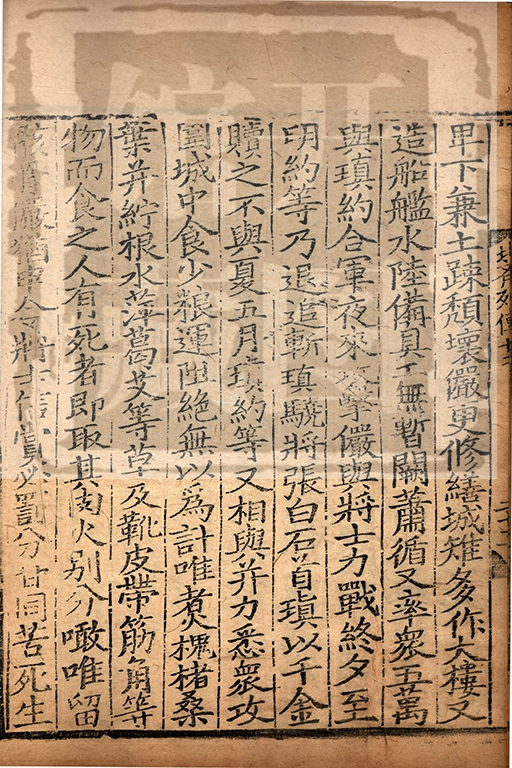 卑下兼土疎頹壞儼更修繕城雉多作大樓又
造船艦水陸備具工無暫闕蕭循又率衆五萬
與瑱約合軍夜來攻擊儼與將士力戰終夕至
明約等乃退追斬瑱驍將張白石首瑱以千金
贖之不與夏五月瑱約等又相與并力悉衆攻
圍城中食少糧運阻絶無以爲計唯煑槐楮桑
葉并紵根水萍葛艾等草及靴皮帶筋角等
物而食之人有死者即取其肉火别分噉唯留
骸骨儼猶申令將士信賞必罰分甘同苦死生